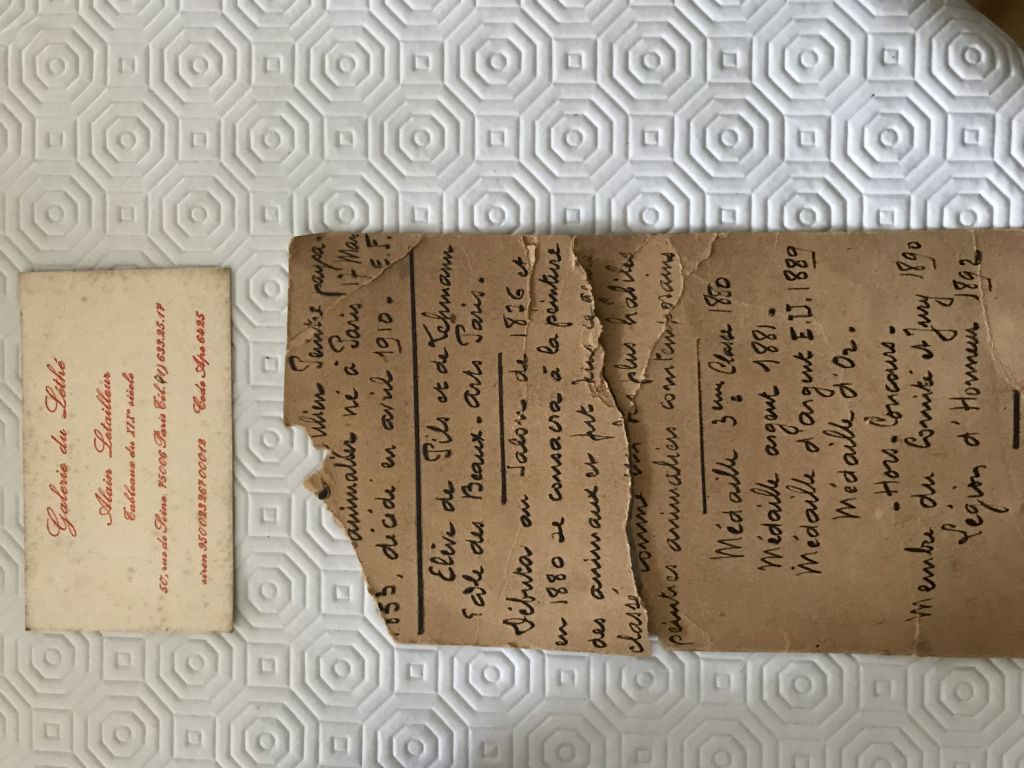 Galerie du Léthé
Alain Letaillier
Tableaux du XIXe siècle
50, rue de Seine. 75006 Paris Tél. (1) 633.25.17
siren 350 Code Ape 6425
Peintre paysa.
animalier né à Paris 17 Mars
1833, décédé en avril 1910. E.F.
Elève de Pils et de Lehmann
Ecole des Beaux-arts Paris.
Débuta au Salon de 1876 et
en 1880 se consacra à la peinture
des animaux et fut
classé comme un plus habiles
peintres animaliers contemporains
Médaille 3ème Classe 1880
Médaille argent 1881.
Médaille d'argent E.U. 1889
Médaille d'Or.
- Hors-Concours -
Membre du Comité et Jury 1890
Légion d'Honneur 1892